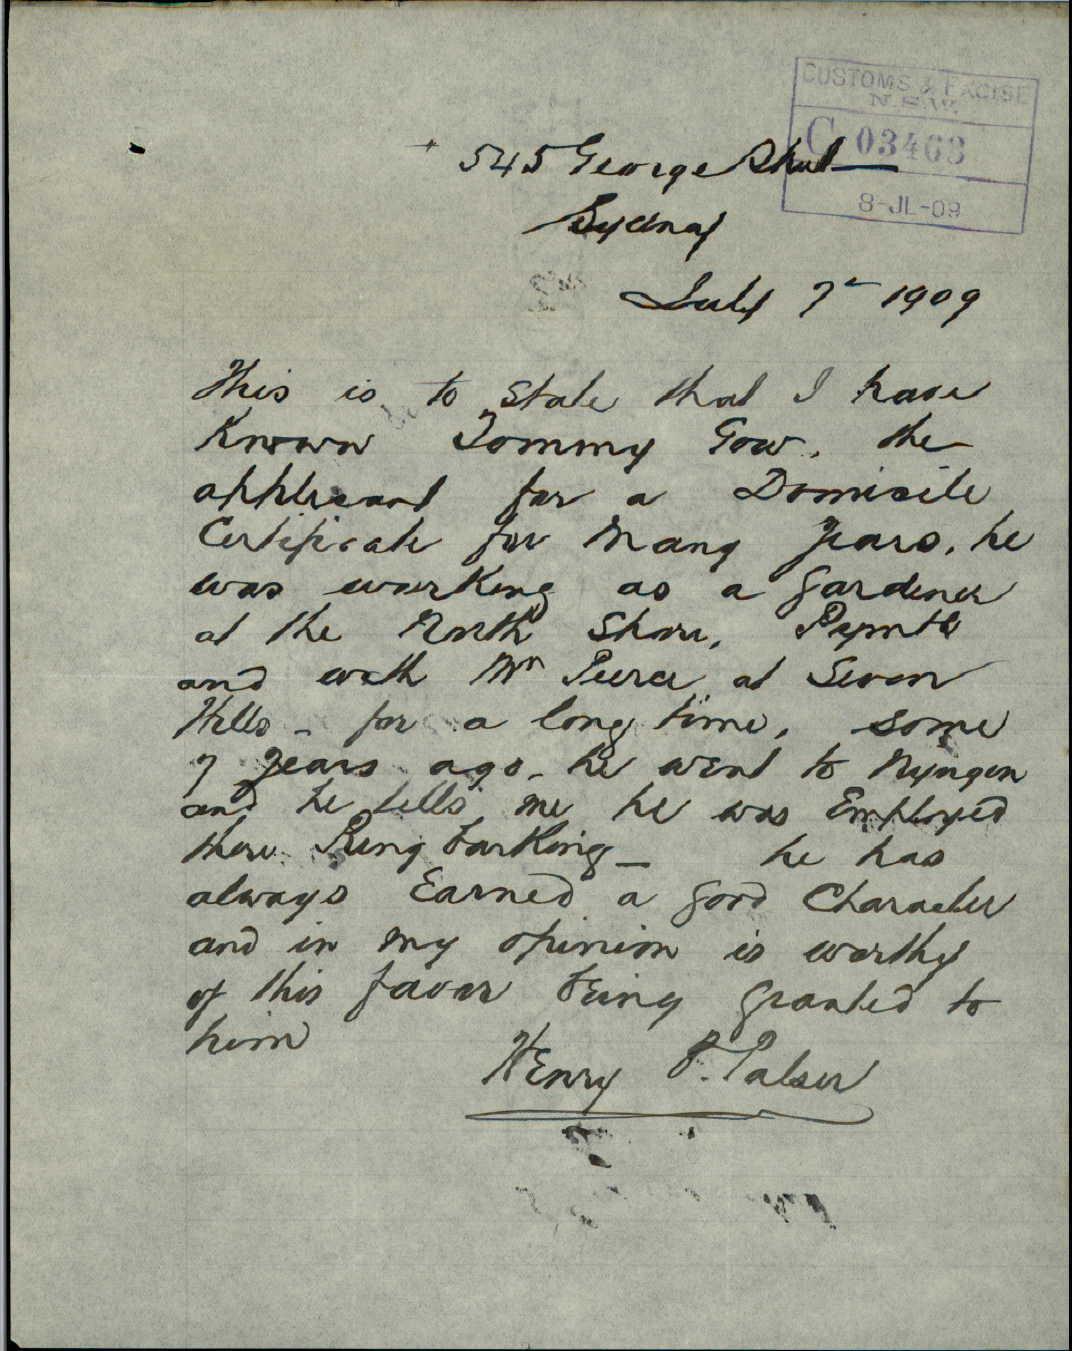 CUSTOMS & EXCISE
N.S.W.
C 03463
8-JL-09
545 George Street
Sydney
July 7th 1909
This is to state that I have
Known Tommy Gow, the
applicant for a Domicile
Certificate for Many Years, he
was working as a gardener
at the North Shore,
and with Mr Pierce at Seven
Hills - for a long time, some
7 Years ago - he went to Nyngan
and he tells me he was Employed
there Ring barking - he has
always Earned a good Character
and in my opinion is worthy
of this favor being granted to
him
Henry F. Palser